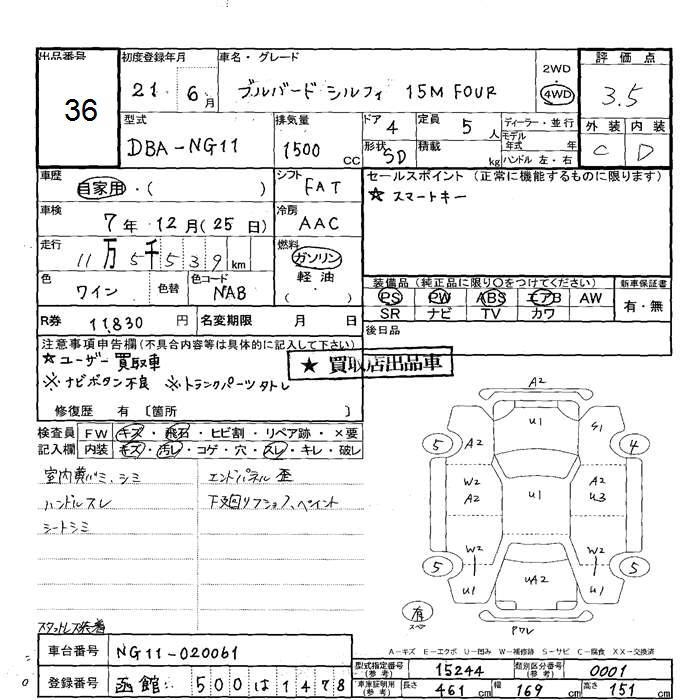 出品番号 初度登録年月 車名・グレード 評価点
36 21 6月 ブルバード シルフィ 15M FOUR 2WD 4WD 3.5
型式 排気量 ドア 4 定員 5人 ディーラー・並行 外装 内装
DBA-NG11 1500cc 形状 SD 積載 kg モデル年式 年 C D
ハンドル 左・右
車歴 自家用・( ) シフト FAT セールスポイント(正常に機能するものに限ります)
★スマートキー
車検 7年12月(25日) 冷房 AAC
走行 11万5千539km 燃料 ガソリン
軽油
( )
色 ワイン 色替 色コード NAB
装備品(純正品に限り○をつけてください) 新車保証書
PS PW ABS エアB AW 有・無
SR ナビ TV カワ
R券 11,830円 名変期限 月 日 後日品
注意事項申告欄(不具合内容等は具体的に記入して下さい)
★ユーザー買取車 ★買取店出品車
※ナビボタン不良 ※トランクパーツタトレ
修復歴 有〔箇所 〕
検査員 FW キズ・飛石・ヒビ割・リペア跡・×要
記入欄 内装 キズ・汚レ・コゲ・穴・スレ・キレ・破レ
室内黄バミ、シミ エンドパネル歪
ハンドルスレ 下廻リフショク、ペイント
シートシミ
A2
U1
5 A2 S1 4
W2 A2 U1 A2 U3
W2 W2
5 U1 UA2 U1 5
有 スペア Pワレ
スタットレス装着
A-キズ E-エクボ U-凹み W-補修跡 S-サビ C-腐食 XX-交換済
車台番号 NG11-020061
型式指定番号(参考) 15244 類別区分番号(参考) 0001
登録番号 函館 500は1478
車庫証明用(参考) 長さ 461cm 幅 169cm 高さ 151cm